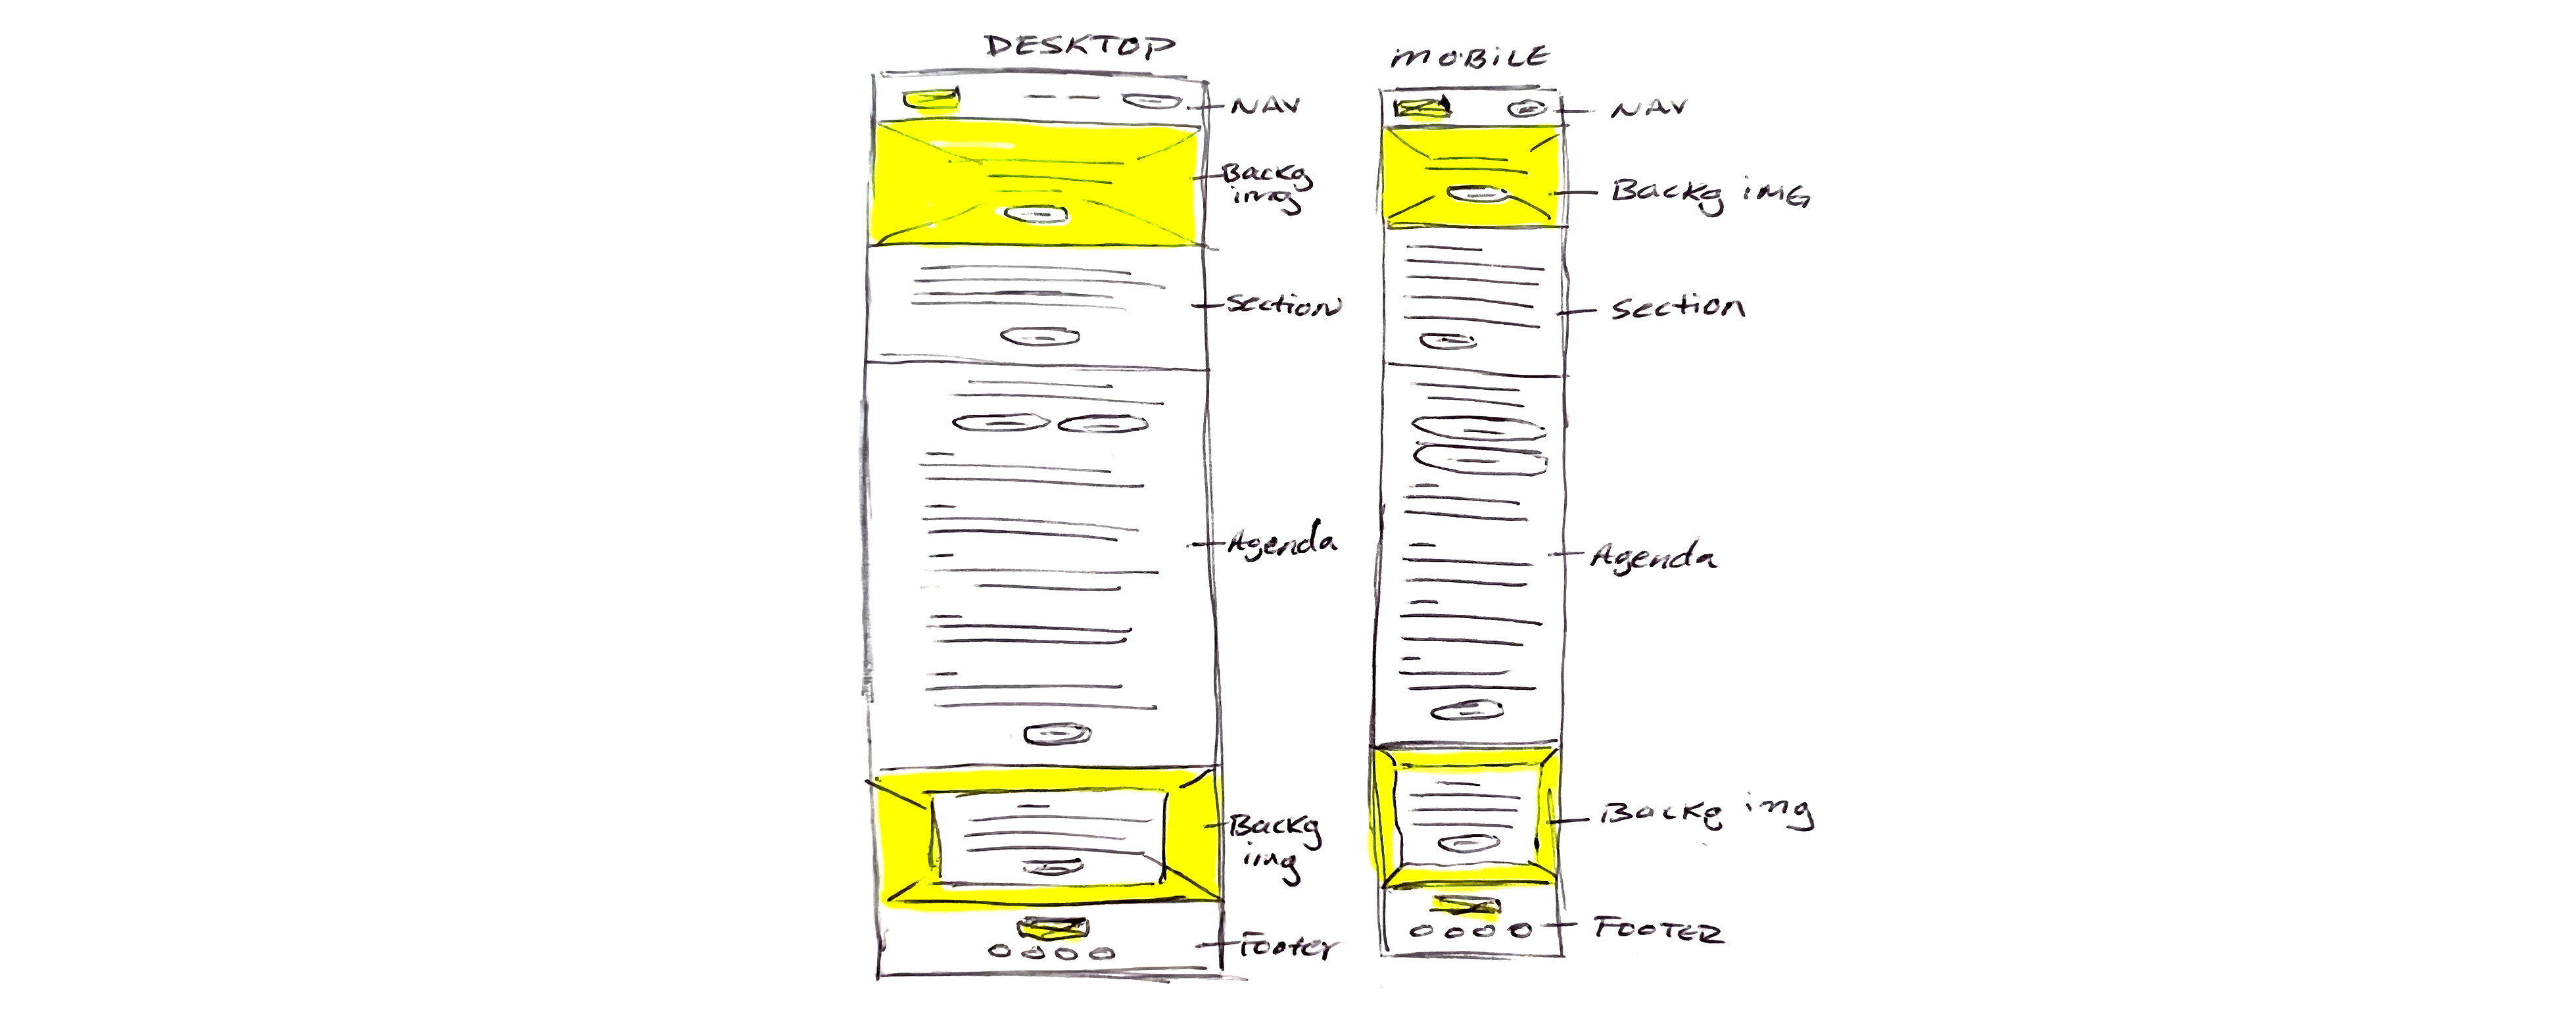 DESKTOP
NAV
Backg
img
Section
Agenda
Backg
img
Footer
MOBiLE
NAV
Backg iMG
Section
Agenda
Backg img
FOOTER